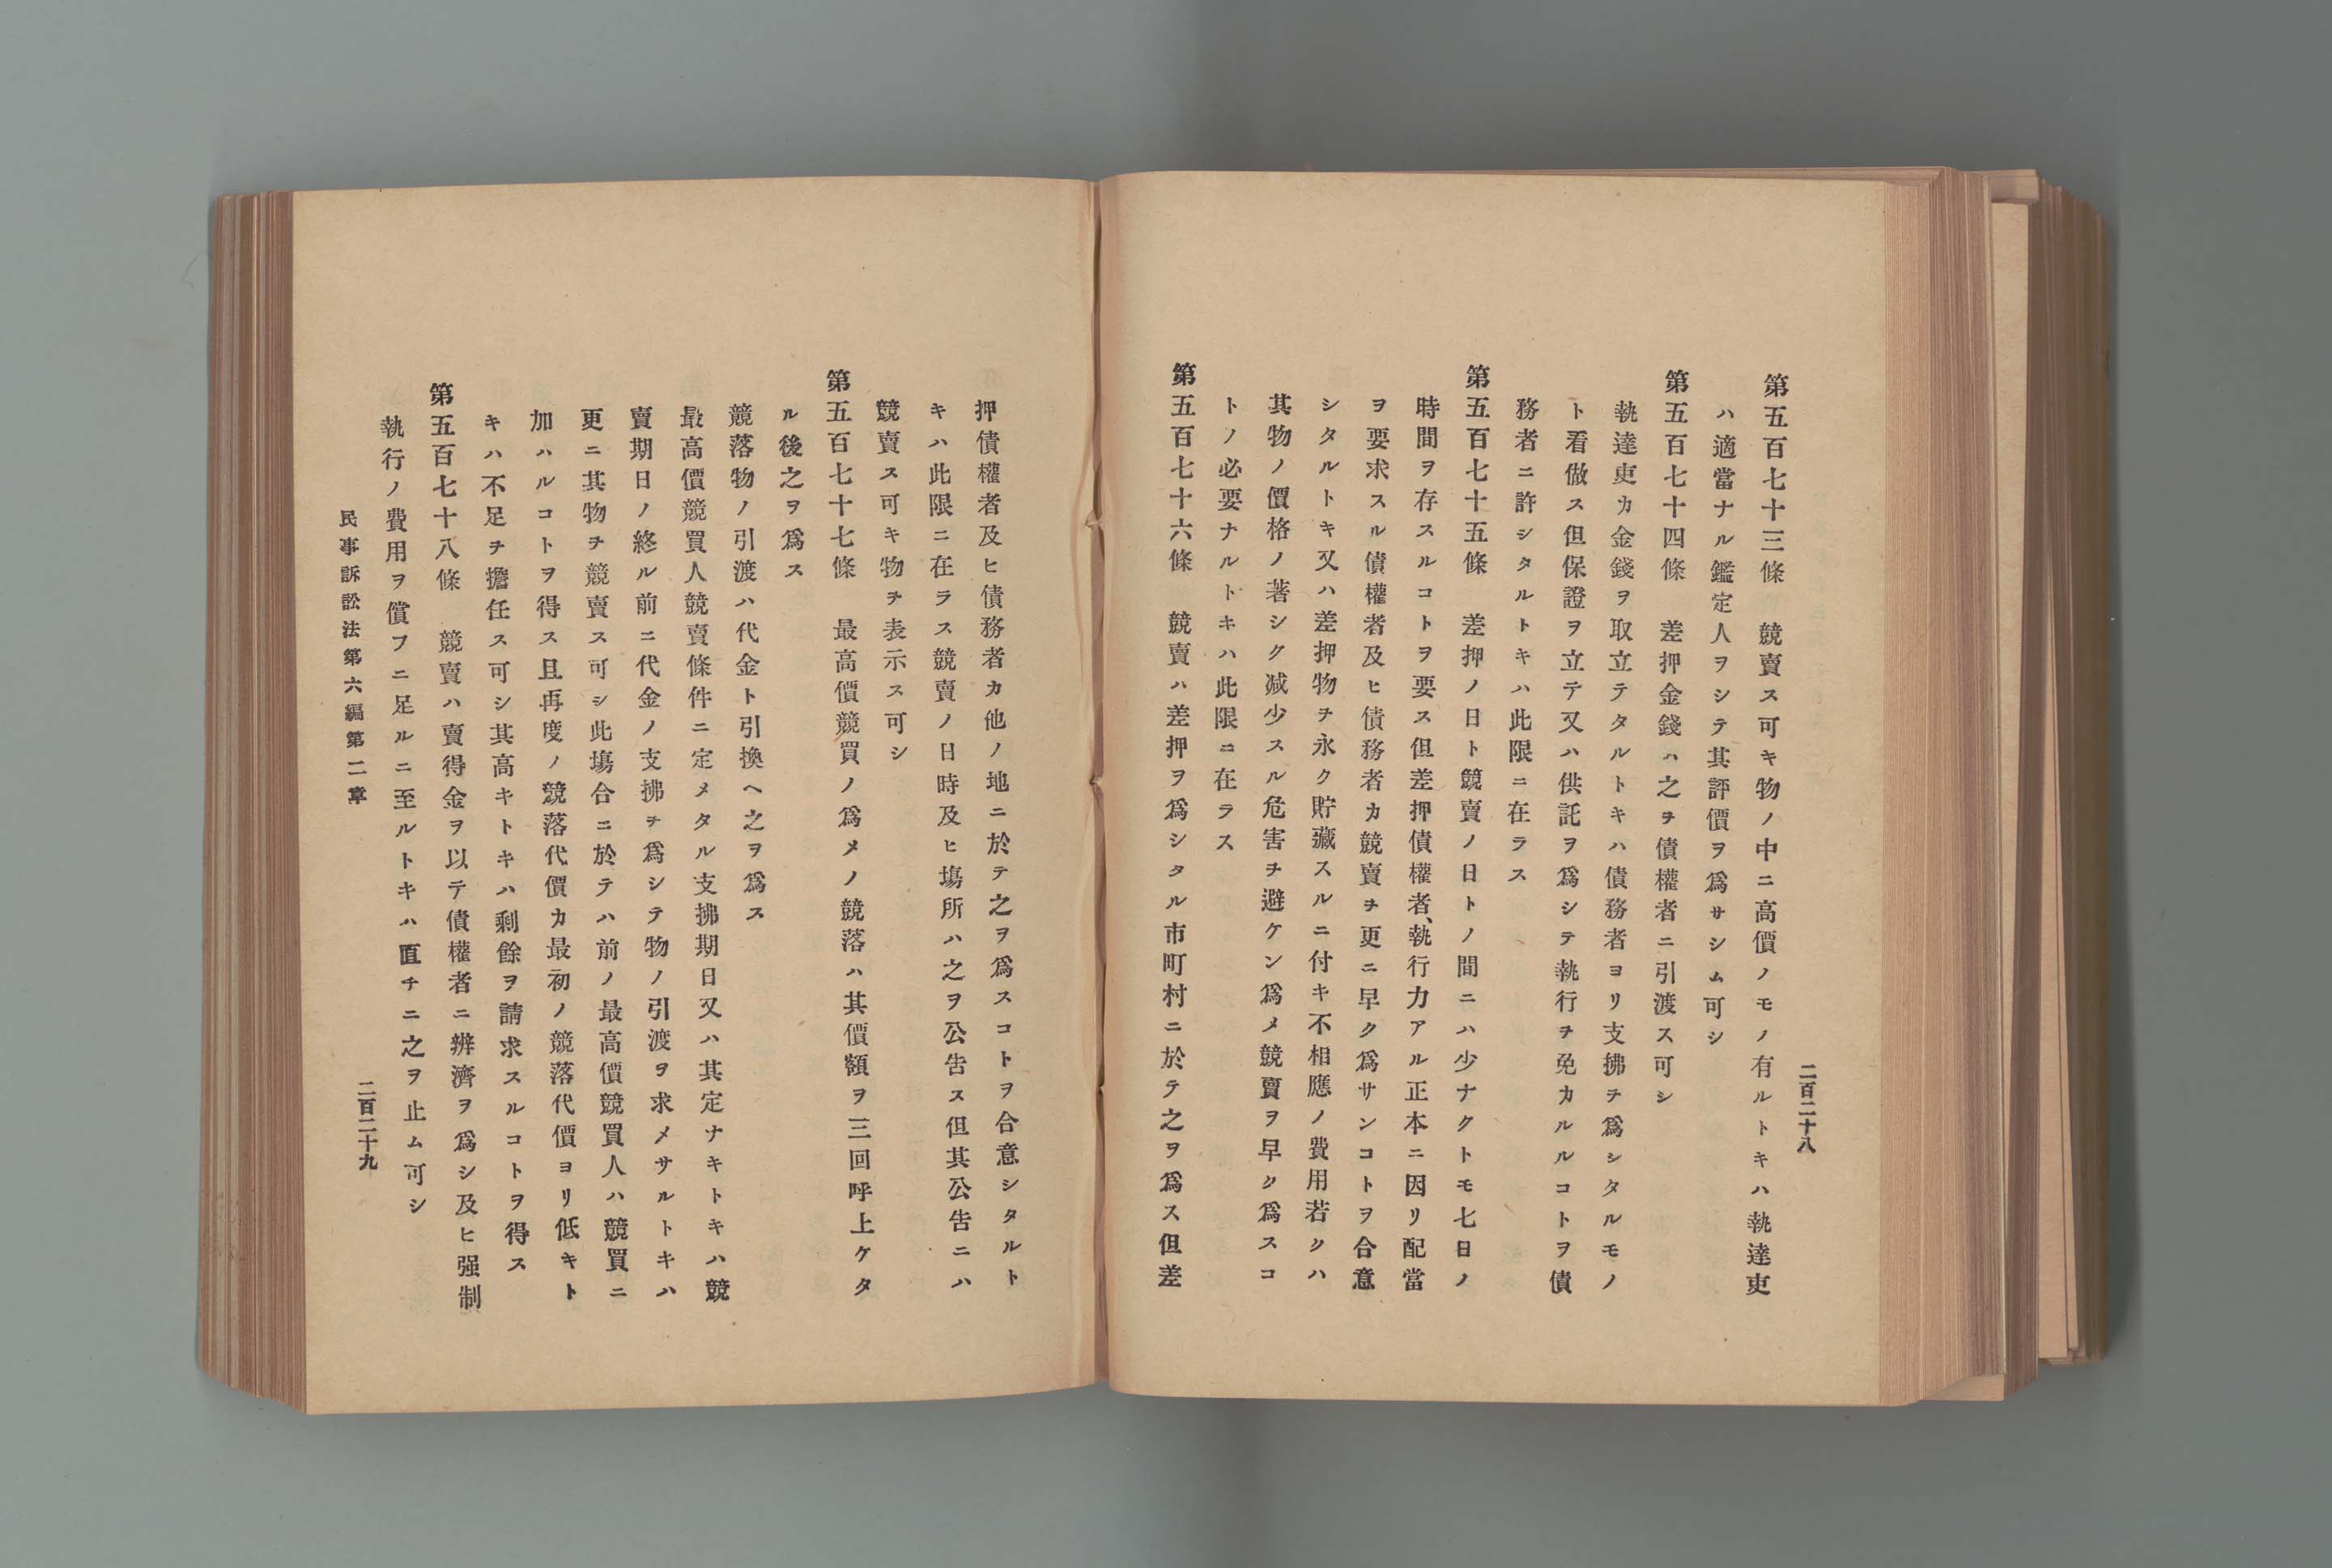 二百二十八
第五百七十三條　競賣ス可キ物ノ中ニ高價ノモノ有ルトキハ執達吏
ハ適當ナル鑑定人ヲシテ其評價ヲ爲サシム可シ
第五百七十四條　差押金錢ハ之ヲ債權者ニ引渡ス可シ
執達吏カ金錢ヲ取立テタルトキハ債務者ヨリ支拂ヲ爲シタルモノ
ト看做ス但保證ヲ立テ又ハ供託ヲ爲シテ執行ヲ免カルルコトヲ債
務者ニ許シタルトキハ此限ニ在ラス
第五百七十五條　差押ノ日ト競賣ノ日トノ間ニハ少ナクトモ七日ノ
時間ヲ存スルコトヲ要ス但差押債權者、執行力アル正本ニ因リ配當
ヲ要求スル債權者及ヒ債務者カ競賣ヲ更ニ早ク爲サンコトヲ合意
シタルトキ又ハ差押物ヲ永ク貯藏スルニ付キ不相應ノ費用若クハ
其物ノ價格ノ著シク减少スル危害ヲ避ケン爲メ競賣ヲ早ク爲スコ
トノ必要ナルトキハ此限ニ在ラス
第五百七十六條　競賣ハ差押ヲ爲シタル市町村ニ於テ之ヲ爲ス但差
押債權者及ヒ債務者カ他ノ地ニ於テ之ヲ爲スコトヲ合意シタルト
キハ此限ニ在ラス競賣ノ日時及ヒ塲所ハ之ヲ公告ス但其公告ニハ
競賣ス可キ物ヲ表示ス可シ
第五百七十七條　最高價競買ノ爲メノ競落ハ其價額ヲ三回呼上ケタ
ル後之ヲ爲ス
競落物ノ引渡ハ代金ト引換ヘ之ヲ爲ス
最高價競買人競賣條件ニ定メタル支拂期日又ハ其定ナキトキハ競
賣期日ノ終ル前ニ代金ノ支拂ヲ爲シテ物ノ引渡ヲ求メサルトキハ
更ニ其物ヲ競賣ス可シ此塲合ニ於テハ前ノ最高價競買人ハ競買ニ
加ハルコトヲ得ス且再度ノ競落代價カ最初ノ競落代價ヨリ低キト
キハ不足ヲ擔任ス可シ其高キトキハ剩餘ヲ請求スルコトヲ得ス
第五百七十八條　競賣ハ賣得金ヲ以テ債權者ニ辨濟ヲ爲シ及ヒ强制
執行ノ費用ヲ償フニ足ルニ至ルトキハ直チニ之ヲ止ム可シ
民事訴訟法第六編第二章
二百二十九